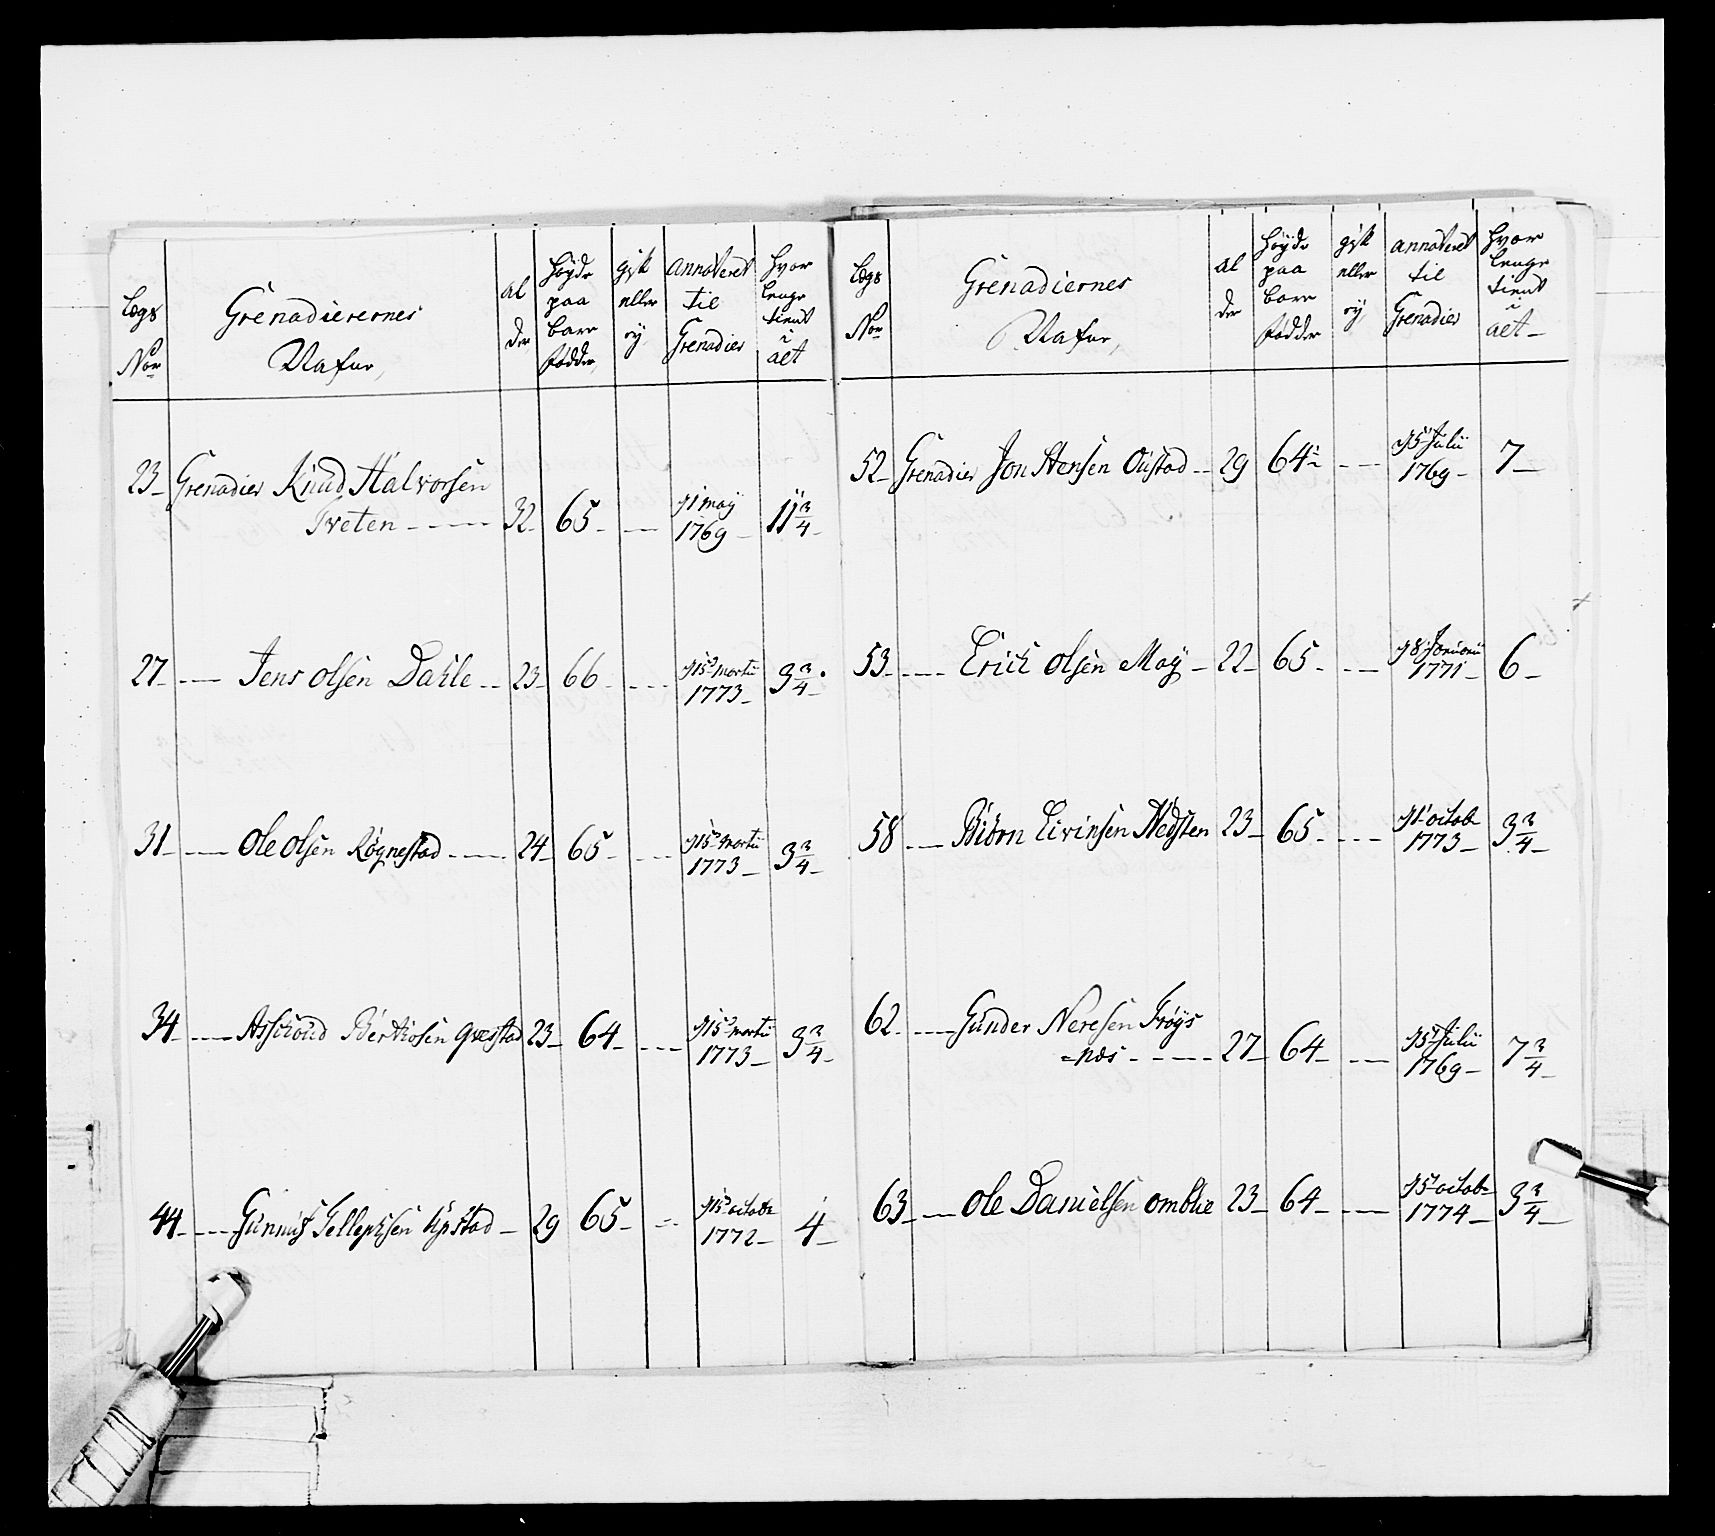 Legs
Nor
Grenadierernes
Nafne,
Al
der
Høyde
paa
bare
fødder
gift
eller
ey
annoteret
til
Grenadier
Hvor
lenge
tient
i
alt
23 Grenadier Knud Halvorsen
Tveten 32 65 d 1 may 1769 11 3/4
27 Jens Olsen Dahle 23 66 d 15 martii 1773 3 3/4
31 Ole Olsen Røgnestad 24 65 d 15 martii 1773 3 3/4
34 23 64 d 15 martii 1773 3 3/4
44 29 65 d 15 octobr 1772 4
Legs
Nor
Grenadiernes
Nafne,
Al
der
Høyde
paa
bare
fødder
gift
eller
ey
annoteret
til
Grenadier
Hvor
lenge
tient
i
alt
52 Grenadier Jon Stensen Oustad 29 64 1/2 d 5 Julii 1769 7
53 Erich Olsen Moy 22 65 d 8 Januarii 1771 6
58 Biørn Eivinsen 23 65 d 1 octob 1773 3 3/4
62 Gunder Neresen Frøys
=næs 27 64 d 5 Julii 1769 7 3/4
63 Ole Danielsen Omblie 23 64 d 5 octob 1774 3 3/4